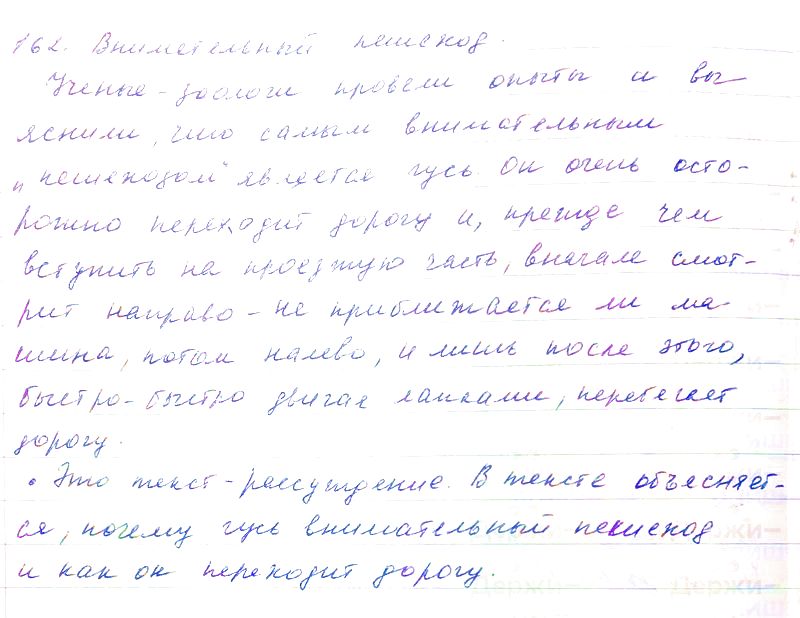 162. Внимательный пешеход.
Ученые-зоологи провели опыты и вы
яснили, что самым внимательным
„пешеходом" является гусь. Он очень осто-
рожно переходит дорогу и, прежде чем
вступить на проезжую часть, вначале смот-
рит направо - не приближается ли ма-
шина, потом налево, и лишь после этого,
быстро-быстро двигая лапками, перебегает
дорогу.
• Это текст-рассуждение. В тексте объясняет-
ся, почему гусь внимательный пешеход
и как он переходит дорогу.